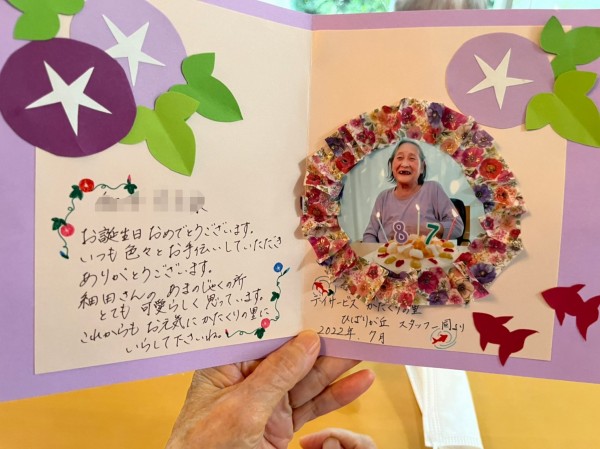 お誕生日おめでとうございます。
いつも色々とお手伝いしていただき
ありがとうございます。
細田さんの あまのじゃくの所
とても可愛らしく思っています。
これからもお元気にかたくりの里に
いらして下さいね。
87
デイサービス かたくりの里
ひばりが丘 スタッフ一同より
2022年.7月